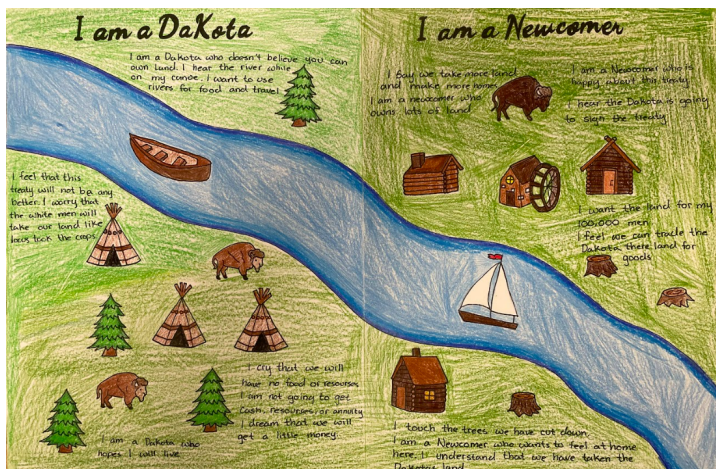 I am a Dakota
I am a Dakota who doesn't believe you can
own land. I hear the river while
on my canoe. I want to use
rivers for food and travel
I feel that this
treaty will not be any
better. I worry that
the white men will
take our land like
locus took the crops.
I cry that we will
have no food or resourses
I am not going to get
cash, resources, or annuity
I dream that we will
get a little money.
I am a Dakota who
hopes I will live
I am a Newcomer
I say we take more land
and make more homes
I am a newcomer who
owns lots of land
I am a Newcomer who is
happy about this treaty
I hear the Dakota is going
to sign the treaty
I want the land for my
100,000 men
I feel we can trade the
Dakota there land for
goods
I touch the trees we have cut down
I am a Newcomer who wants to feel at home
here. I understand that we have taken the
Dakota's land